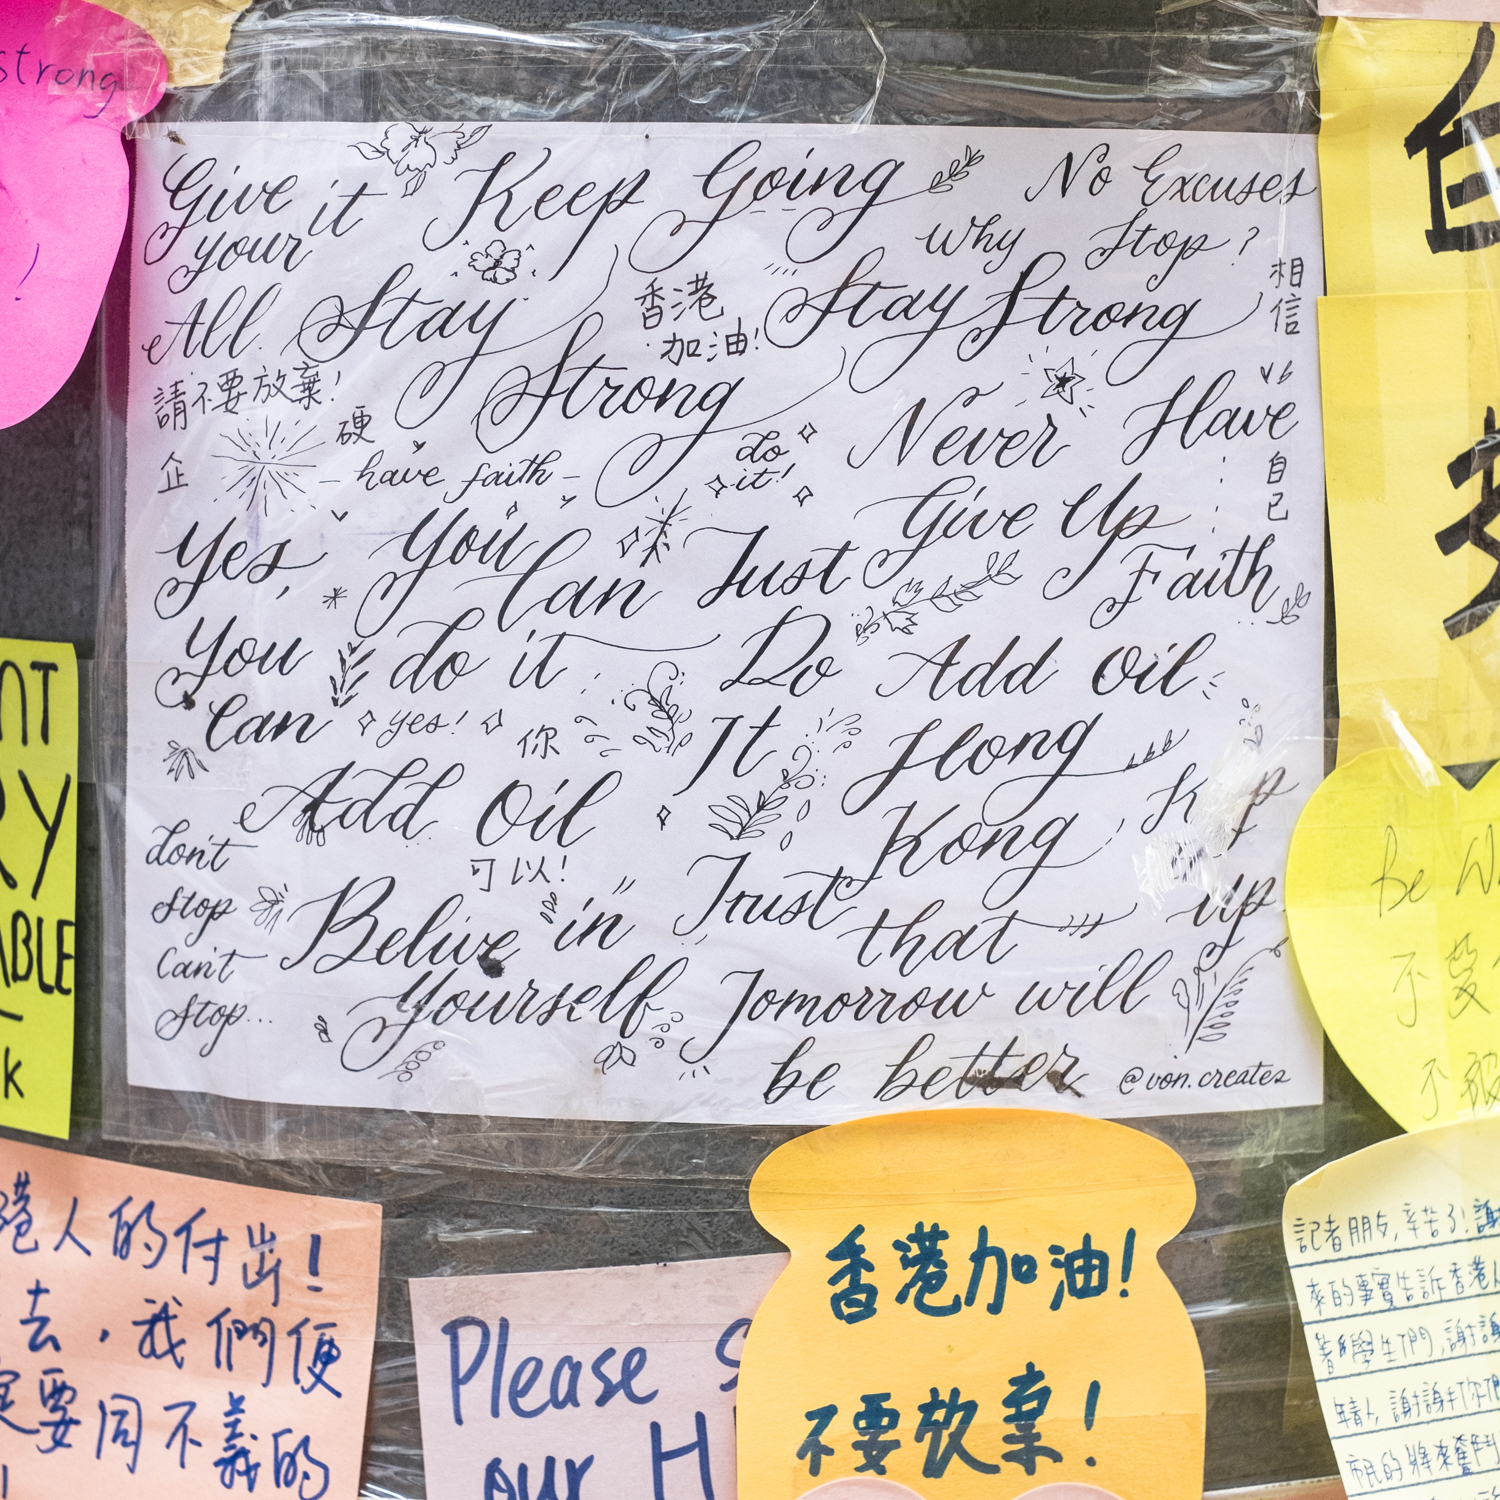 strong
!
Give it
your
All
Keep Going
No Excuses
Why Stop?
Stay
Strong
香港
加油!
Stay Strong
相信
自己
請不要放棄!
硬
企
have faith
do
it!
Never
Give Up
Have
Faith
Yes, You Can
Just
Do
It
You do it
Can
yes!
你
可以!
Add Oil
Add Oil
Hong
Kong
up
don't
stop
can't
stop...
Belive in
Yourself
Trust that
Tomorrow will
be better
@von.creates
NT
RY
ABLE
K
港人的付出!
去,我們便
要同不義的
Please
our H
香港加油!
不要放棄!
Be
不
不
記者朋友,辛苦了!謝
來的事實告訴香港人
學生們,謝謝
年青人,謝謝你們
市民的將來奮鬥